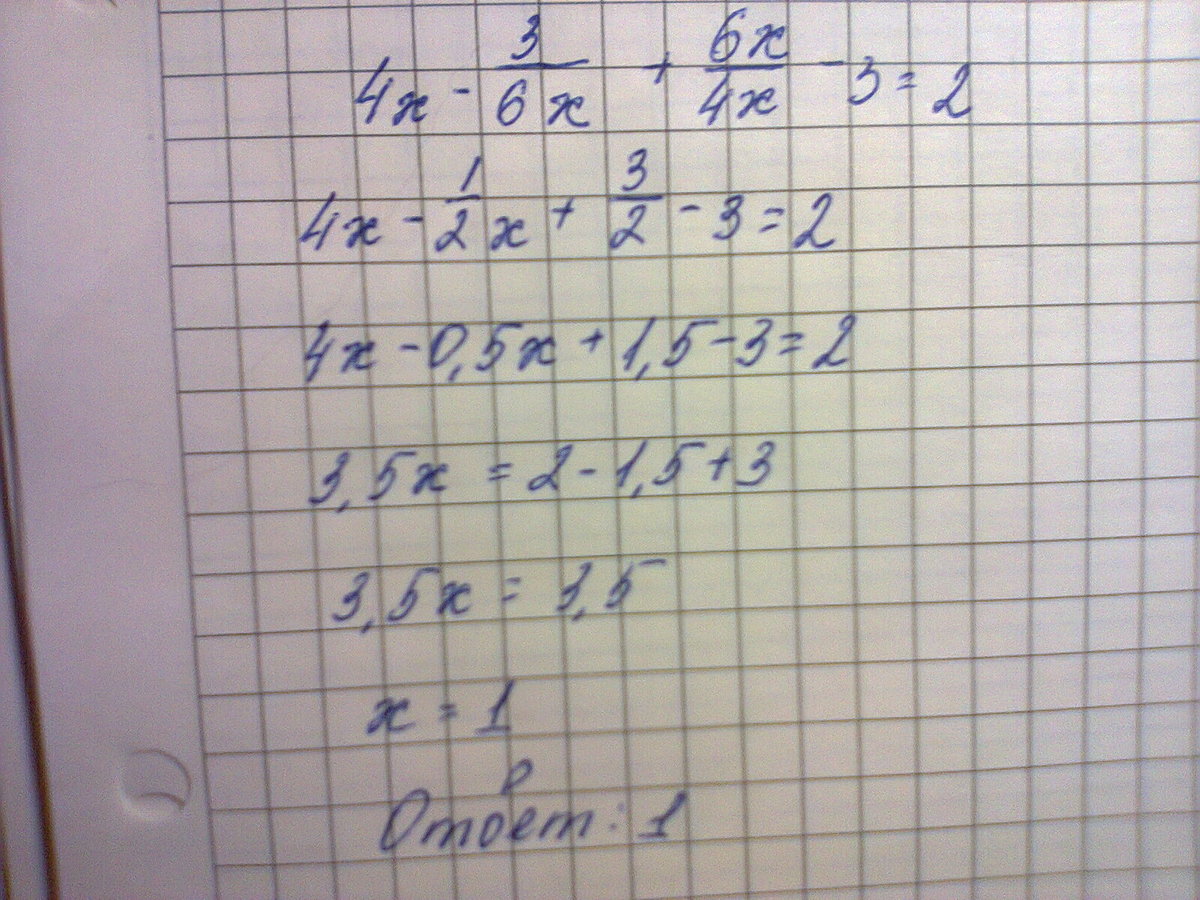 4x - 3/6x + 6x/4x - 3 = 2
4x - 1/2 x + 3/2 - 3 = 2
4x - 0,5x + 1,5 - 3 = 2
3,5x = 2 - 1,5 + 3
3,5x = 3,5
x = 1
Ответ: 1